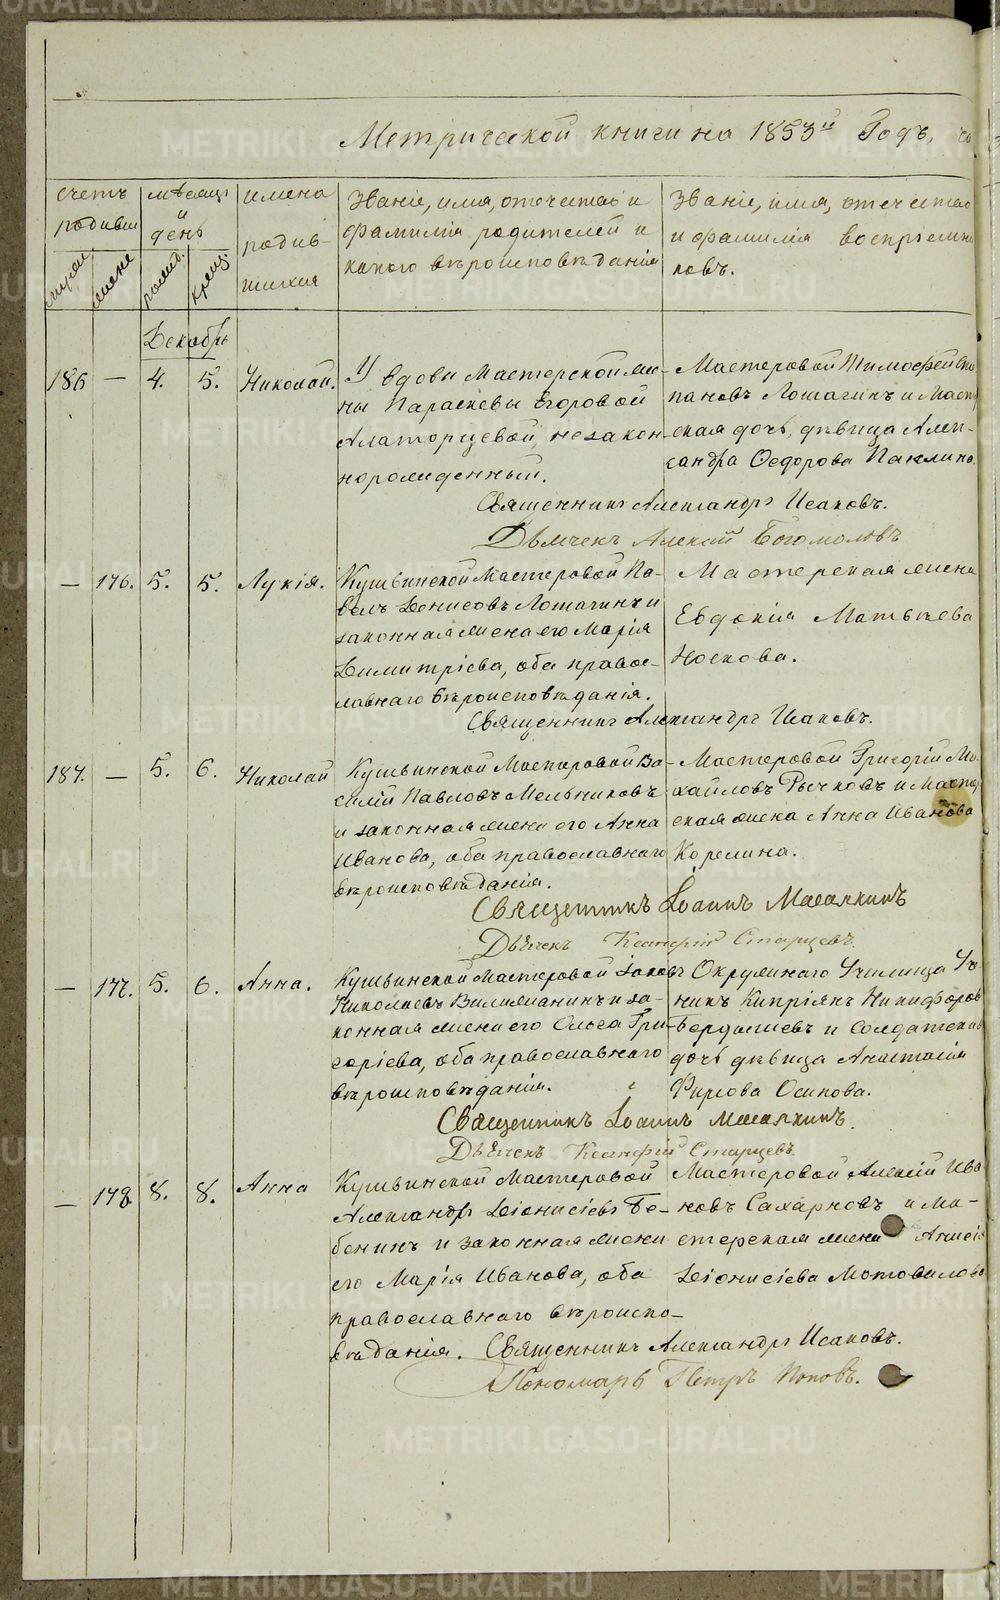 Метрической книги на 1853й Годъ,
счетъ родивш
мѣсяцъ и день
имена родив-шихся
Званіе, имя, отечество и
фамилія родителей и
какого вѣроисповѣданія
Званіе, имя, отечество
и фамилія воспріемни
ковъ.
мужеск
женск
рожд.
крещ.
Декабрь
186 — 4. 5. Николай. У вдовы Мастерской же-
ны Параскевы Егоровой
Алаторцевой, незакон-
норожденный.
Мастеровой Тимофей Сте
пановъ Лошагинъ и Маст
ская дочь, дѣвица Алек-
сандра Ѳедорова Паклина.
Священникъ Александръ Исаковъ.
Дьячекъ Алексій Богомоловъ
— 176. 5. 5. Лукія. Кушвинской Мастеровой Па-
велъ Денисовъ Лошагинъ и
законная жена его Марія
Димитріева, оба правос-
лавнаго вѣроисповѣданія.
Мастерская жена
Евдокія Матвѣева
Носкова.
Священникъ Александръ Исаковъ.
187. — 5. 6. Николай Кушвинской Мастеровой Ва-
силій Павловъ Мельниковъ
и законная жена его Анна
Иванова, оба православнаго
вѣроисповѣданія.
Мастеровой Григорій Ми-
хайловъ Рычковъ и Мастер
ская жена Анна Иванова
Корелина.
Священникъ Іоаннъ Масалкинъ
Дьячекъ Ксанфій Старцевъ.
— 177. 5. 6. Анна. Кушвинской Мастеровой Іаковъ
Николаевъ Вилижанинъ и за-
конная жена его Ольга Гри-
горіева, оба православнаго
вѣроисповѣданія.
Окружнаго Училища Уче
никъ Кипріянъ Никифоров
Бердышевъ и Солдатская
дочь дѣвица Анастасія
Фирсова Осипова.
Священникъ Іоаннъ Масалкинъ.
Дьячекъ Ксанфій Старцевъ
— 178 8. 8. Анна Кушвинской Мастеровой
Александръ Діонисіевъ Бе-
бенинъ и законная жена
его Марія Иванова, оба
православнаго вѣроиспо-
вѣданія.
Мастеровой Алексій Ива
новъ Сахаровъ и Ма-
стерская жена Анисія
Діонисіева Мотовилова
Священникъ Александръ Исаковъ.
Пономарь Петръ Поповъ.
METRIKI.GASO-URAL.RU